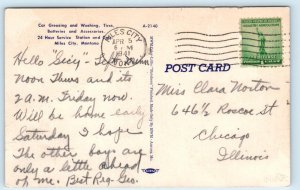 Car Greasing and Washing, Tires,
Batteries and Accessories
24 Hour Service Station and
Miles City, Montana
A-2140
MILES CITY
APR 5
6 PM
1941
MONT.
POST CARD
Hello "Geig" - Left
noon Thurs and its
2 a.m. Friday now.
Will be home early
Saturday I hope
The other boys are
only a little ahead
of me. Best Reg. Geo.
Miss Clara Norton
646½ Roscoe st
Chicago
Illinois